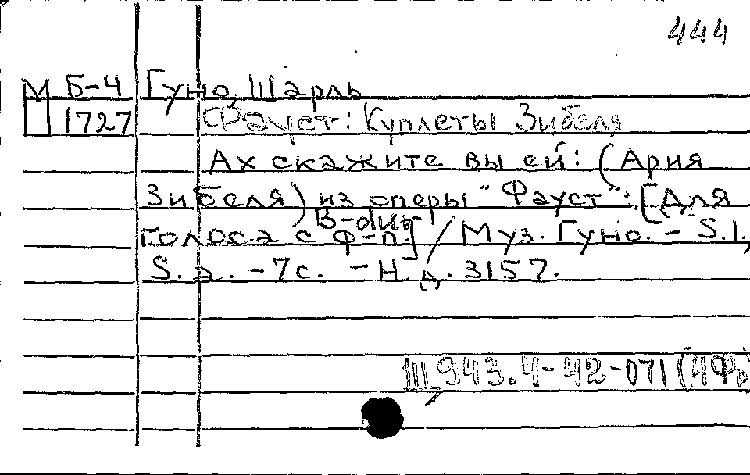 444
М Б-4 Гуно, Шарль
1727 Фауст: Куплеты Зибеля
Ах скажите вы ей: (Ария
Зибеля) из оперы "Фауст": [Для
B-dur
голоса с ф-п.] / Муз. Гуно. - S.l.,
S.a. - 7с. - Н.д. 3157.
Ш 943.4-42-071 (4Фр